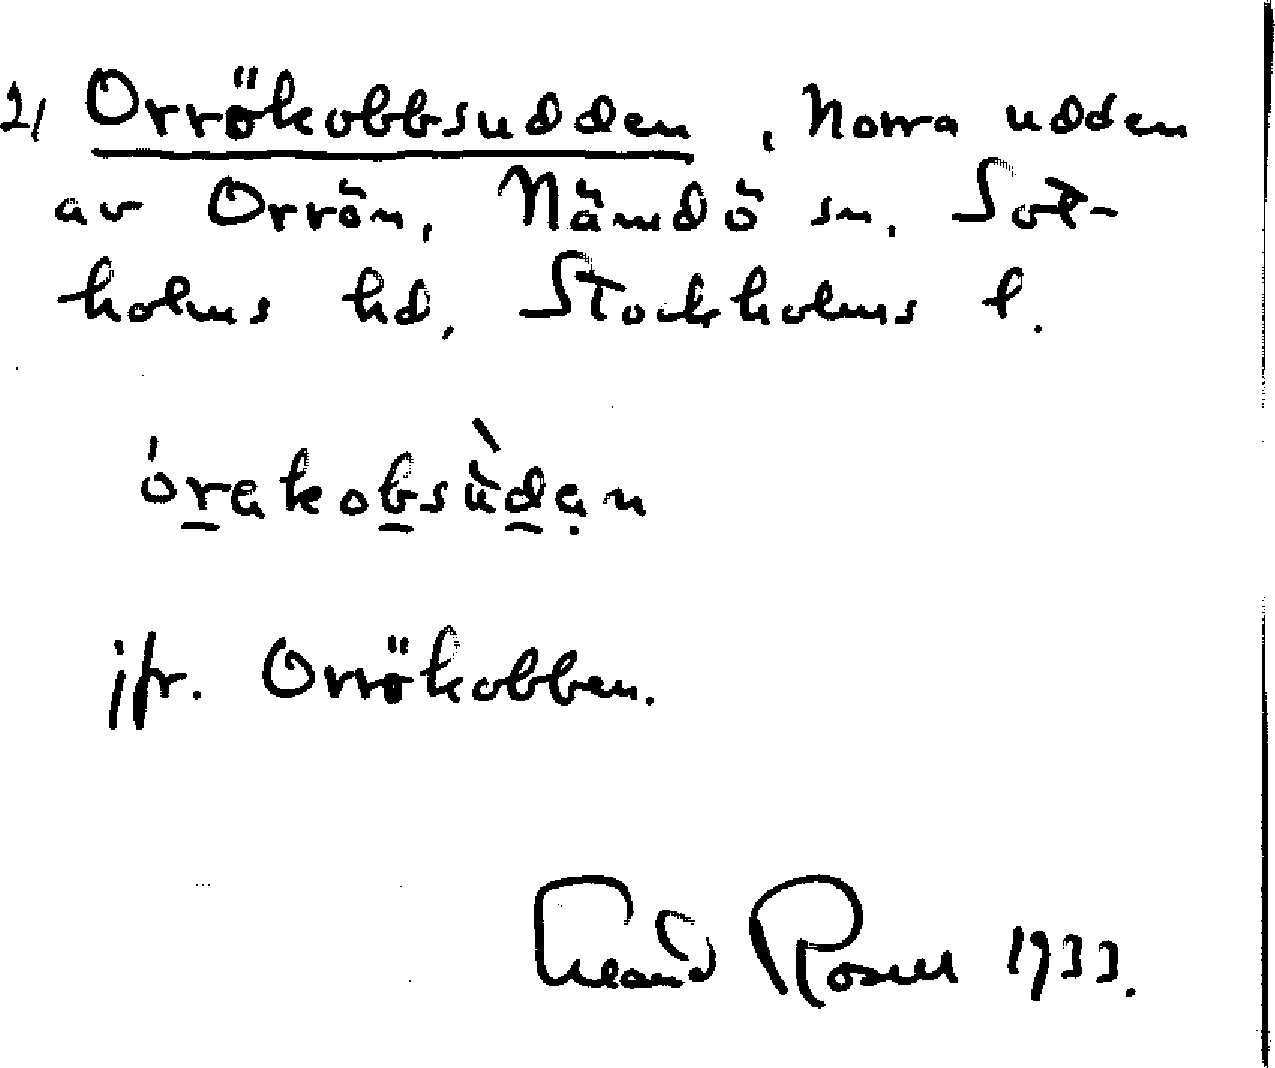 2) Orrökobbsudden, Norra udden
av Orrön, Nämdö sn. Sot-
holms hd, Stockholms l.
órakobsùdạn
jfr. Orrökobben.
Erland Rosell 1933.